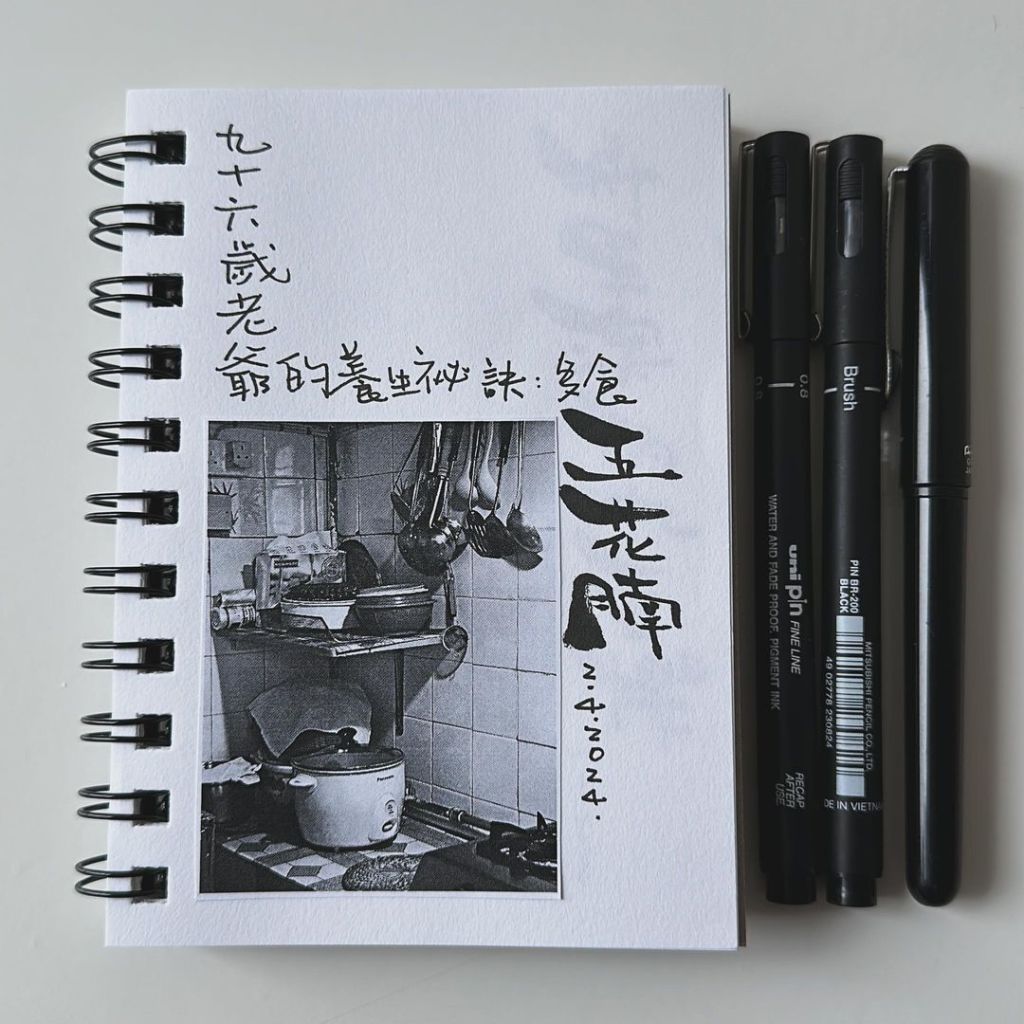 九十六歲老爺的養生祕訣:多食
五花腩
2.4.2024.
0.8
0.8
uni pin FINE LINE
WATER AND FADE PROOF, PIGMENT INK
RECAP AFTER USE
Brush
PIN BR-200
BLACK
MITSUBISHI PENCIL CO., LTD.
49 02778 230824
DE IN VIETNA